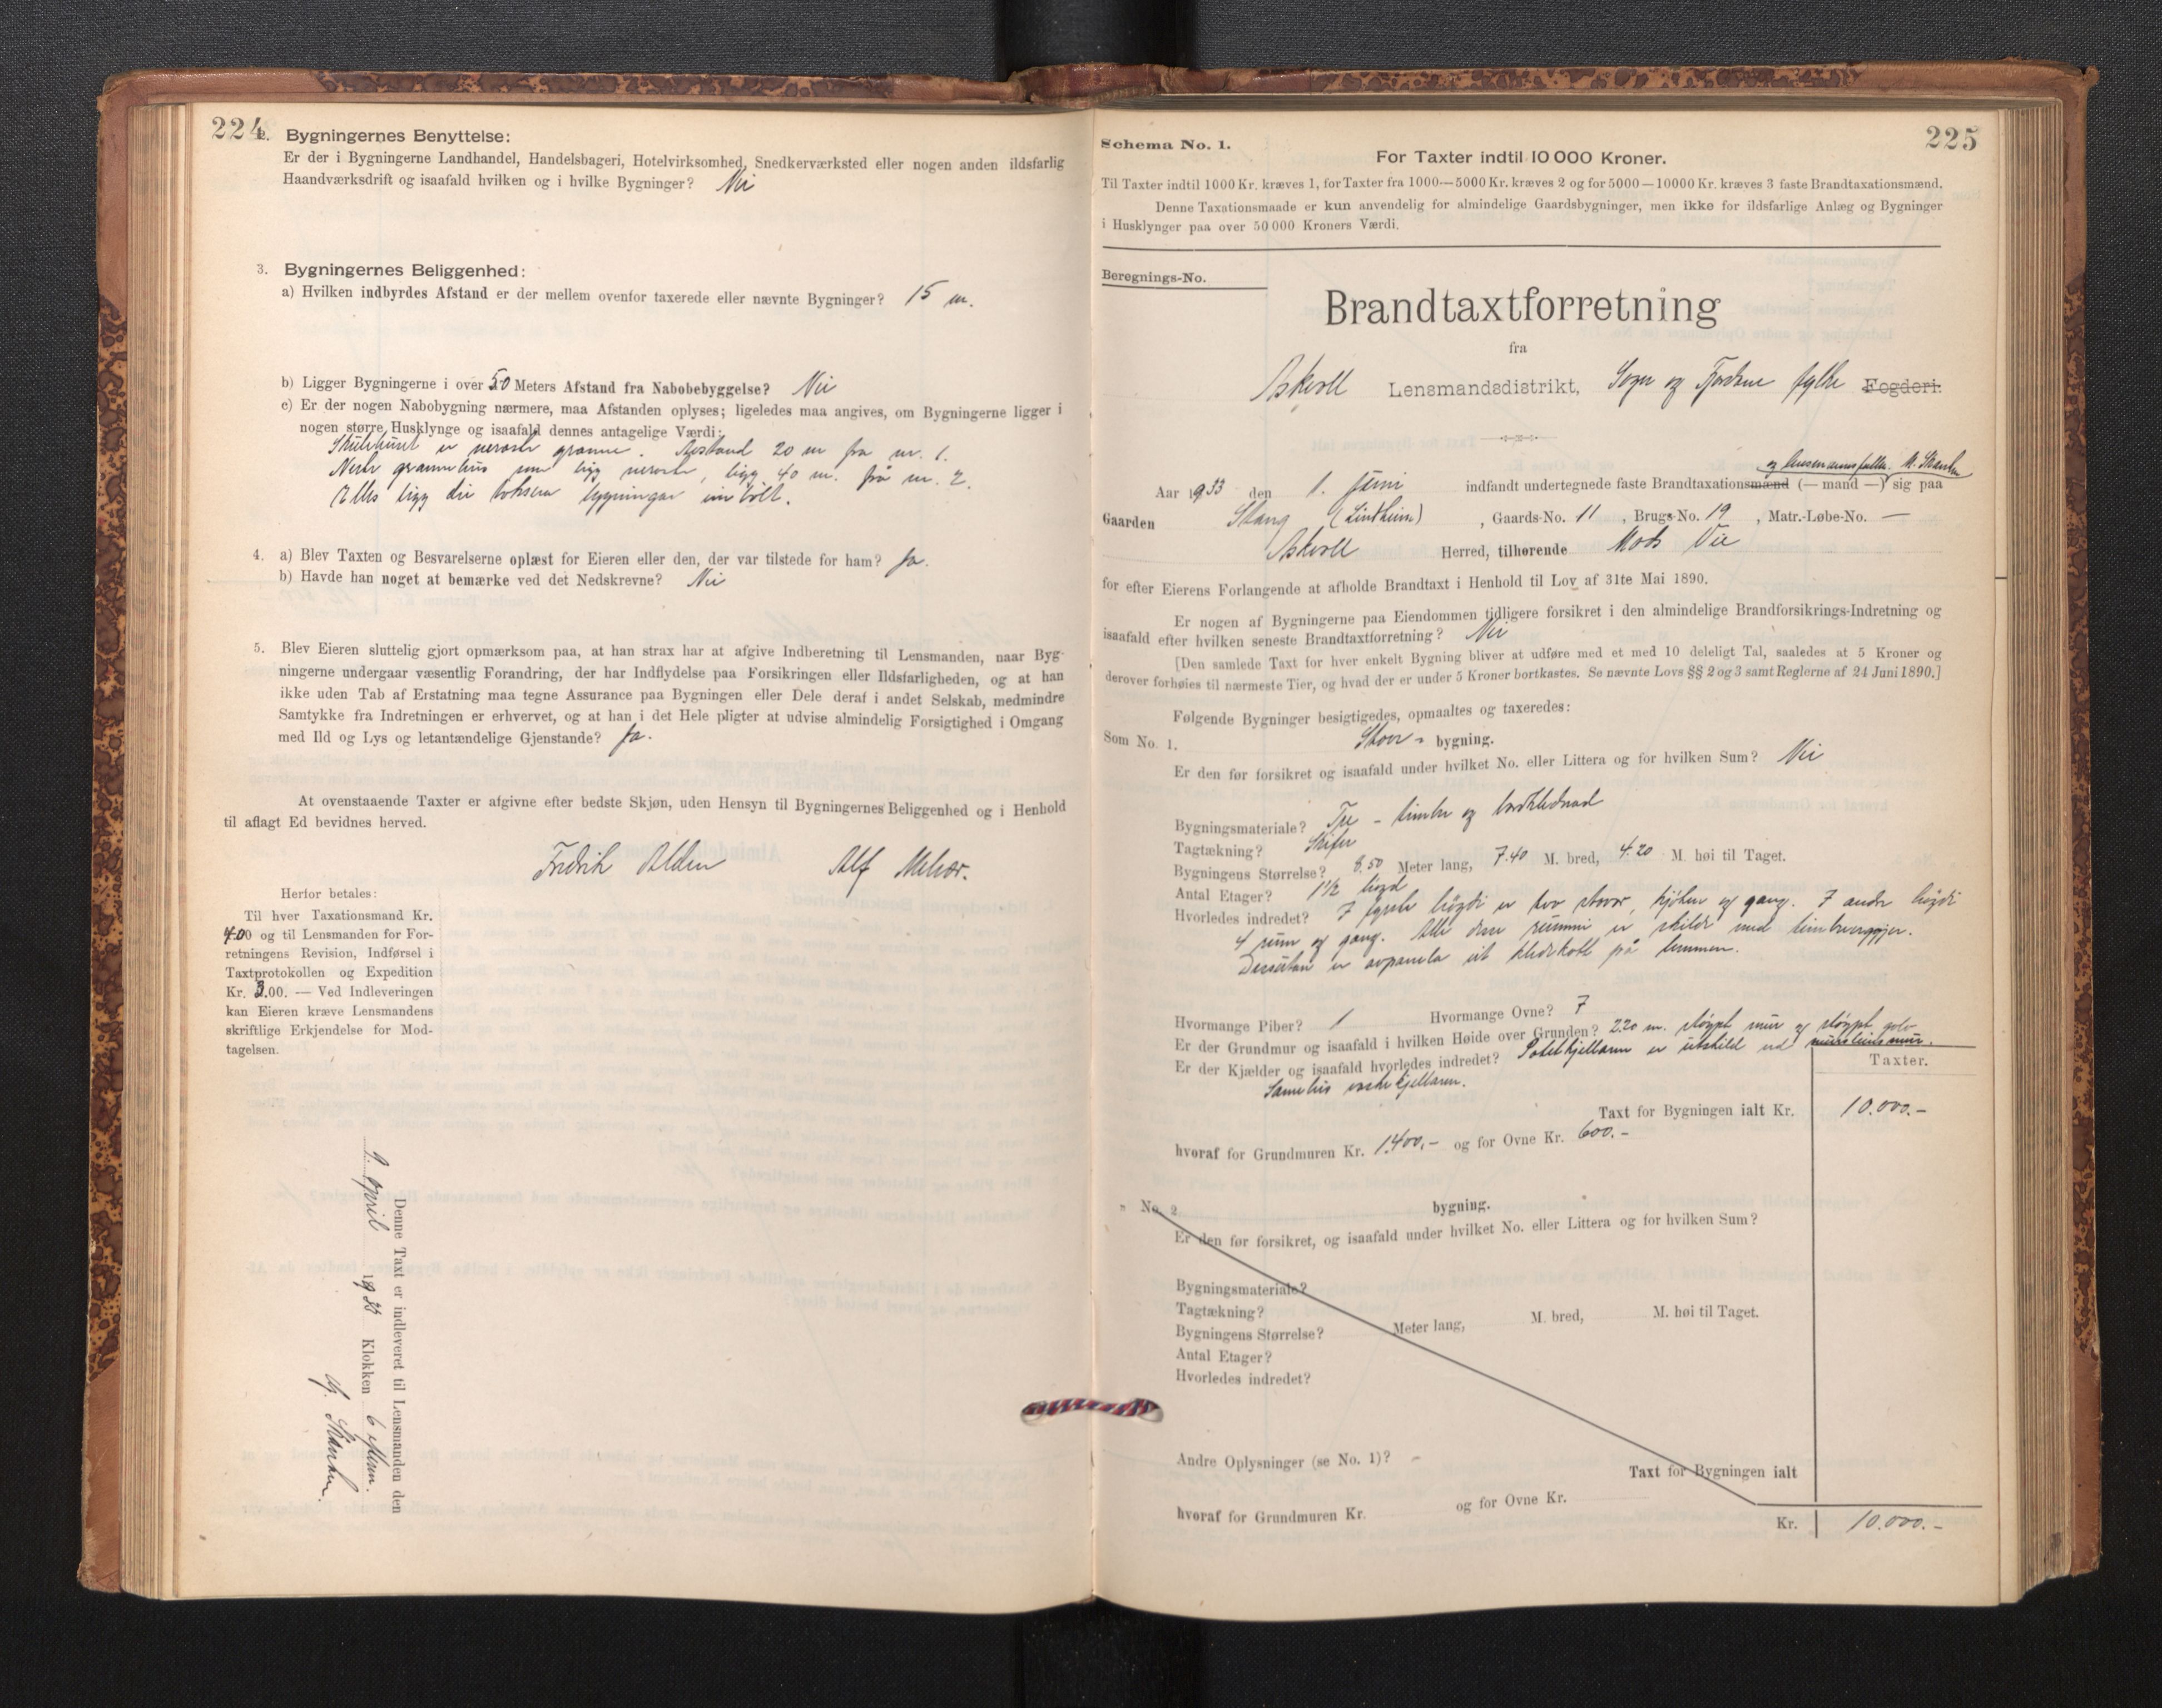 224
2. Bygningernes Benyttelse:
Er der i Bygningerne Landhandel, Handelsbageri, Hotelvirksomhed, Snedkerværksted eller nogen anden ildsfarlig
Haandværksdrift og isaafald hvilken og i hvilke Bygninger? Nei
3. Bygningernes Beliggenhed:
a) Hvilken indbyrdes Afstand er der mellem ovenfor taxerede eller nævnte Bygninger? 15 m.
b) Ligger Bygningerne i over 50 Meters Afstand fra Nabobebyggelse? Nei
c) Er der nogen Nabobygning nærmere, maa Afstanden oplyses; ligeledes maa angives, om Bygningerne ligger i
nogen større Husklynge og isaafald dennes antagelige Værdi:
Skulehuset er næraste granne. Avstand 20 m fra nr. 1.
Neste grannehus som ligg næraste, ligg 40 m. frå nr. 2.
Elles ligg dei takserte bygningar
4. a) Blev Taxten og Besvarelserne oplæst for Eieren eller den, der var tilstede for ham? Ja.
b) Havde han noget at bemærke ved det Nedskrevne? Nei
5. Blev Eieren sluttelig gjort opmærksom paa, at han strax har at afgive Indberetning til Lensmanden, naar Byg-
ningerne undergaar væsentlig Forandring, der har Indflydelse paa Forsikringen eller Ildsfarligheden, og at han
ikke uden Tab af Erstatning maa tegne Assurance paa Bygningen eller Dele deraf i andet Selskab, medmindre
Samtykke fra Indretningen er erhvervet, og at han i det Hele pligter at udvise almindelig Forsigtighed i Omgang
med Ild og Lys og letantændelige Gjenstande? Ja.
At ovenstaaende Taxter er afgivne efter bedste Skjøn, uden Hensyn til Bygningernes Beliggenhed og i Henhold
til aflagt Ed bevidnes herved.
Fredrik Alden Alf Melvær.
Herfor betales:
Til hver Taxationsmand Kr.
4.00 og til Lensmanden for For-
retningens Revision, Indførsel i
Taxtprotokollen og Expedition
Kr. 3.00. — Ved Indleveringen
kan Eieren kræve Lensmandens
skriftlige Erkjendelse for Mod-
tagelsen.
Denne Taxt er indleveret til Lensmanden den
9. april 1933 Klokken 6 efterm.
225
Schema No. 1.
For Taxter indtil 10 000 Kroner.
Til Taxter indtil 1000 Kr. kræves 1, for Taxter fra 1000—5000 Kr. kræves 2 og for 5000—10000 Kr. kræves 3 faste Brandtaxationsmænd.
Denne Taxationsmaade er kun anvendelig for almindelige Gaardsbygninger, men ikke for ildsfarlige Anlæg og Bygninger
i Husklynger paa over 50 000 Kroners Værdi.
Beregnings-No.
Brandtaxtforretning
fra
Askvoll Lensmandsdistrikt, Sogn og Fjordane fylke Fogderi.
og lensmannsfullm.
Aar 1933 den 1. juni indfandt undertegnede faste Brandtaxationsmænd (— mand —) sig paa
Gaarden Skang (Lindheim), Gaards-No. 11, Brugs-No. 19, Matr.-Løbe-No. —
Askvoll Herred, tilhørende Mads Vie
for efter Eierens Forlangende at afholde Brandtaxt i Henhold til Lov af 31te Mai 1890.
Er nogen af Bygningerne paa Eiendommen tidligere forsikret i den almindelige Brandforsikrings-Indretning og
isaafald efter hvilken seneste Brandtaxtforretning? Nei
[Den samlede Taxt for hver enkelt Bygning bliver at udføre med et med 10 deleligt Tal, saaledes at 5 Kroner og
derover forhøies til nærmeste Tier, og hvad der er under 5 Kroner bortkastes. Se nævnte Lovs §§ 2 og 3 samt Reglerne af 24 Juni 1890.]
Følgende Bygninger besigtigedes, opmaaltes og taxeredes:
Som No. 1. Stove- bygning.
Er den før forsikret og isaafald under hvilket No. eller Littera og for hvilken Sum? Nei
Bygningsmateriale? Tre - timbr og bordklednad
Tagtækning? Skifer
Bygningens Størrelse? 8.50 Meter lang, 7.40 M. bred, 4.20 M. høi til Taget.
Antal Etager? 1½ høgd
Hvorledes indredet? I fyrste høgdi er tvo stover, kjøken og gang. I andre høgdi
4 rum og gang. Alle desse rummi er skilde med timbrveggjer.
Dessutan er avpanela eit kledekott på lemmen.
Hvormange Piber? 1 Hvormange Ovne? 7
Er der Grundmur og isaafald i hvilken Høide over Grunden? 2.20 m. støypt mur og støypt golv
Er der Kjælder og isaafald hvorledes indredet? Potetkjellaren er utskild ved mursteinsmur.
Sameleis vaskekjellaren.
Taxter.
Taxt for Bygningen ialt Kr. 10.000.-
hvoraf for Grundmuren Kr. 1400,- og for Ovne Kr. 600.-
" No. 2. bygning.
Er den før forsikret, og isaafald under hvilket No. eller Littera og for hvilken Sum?
Bygningsmateriale?
Tagtækning?
Bygningens Størrelse? Meter lang, M. bred, M. høi til Taget.
Antal Etager?
Hvorledes indredet?
Andre Oplysninger (se No. 1)?
Taxt for Bygningen ialt
hvoraf for Grundmuren Kr. og for Ovne Kr.
Kr. 10.000.-